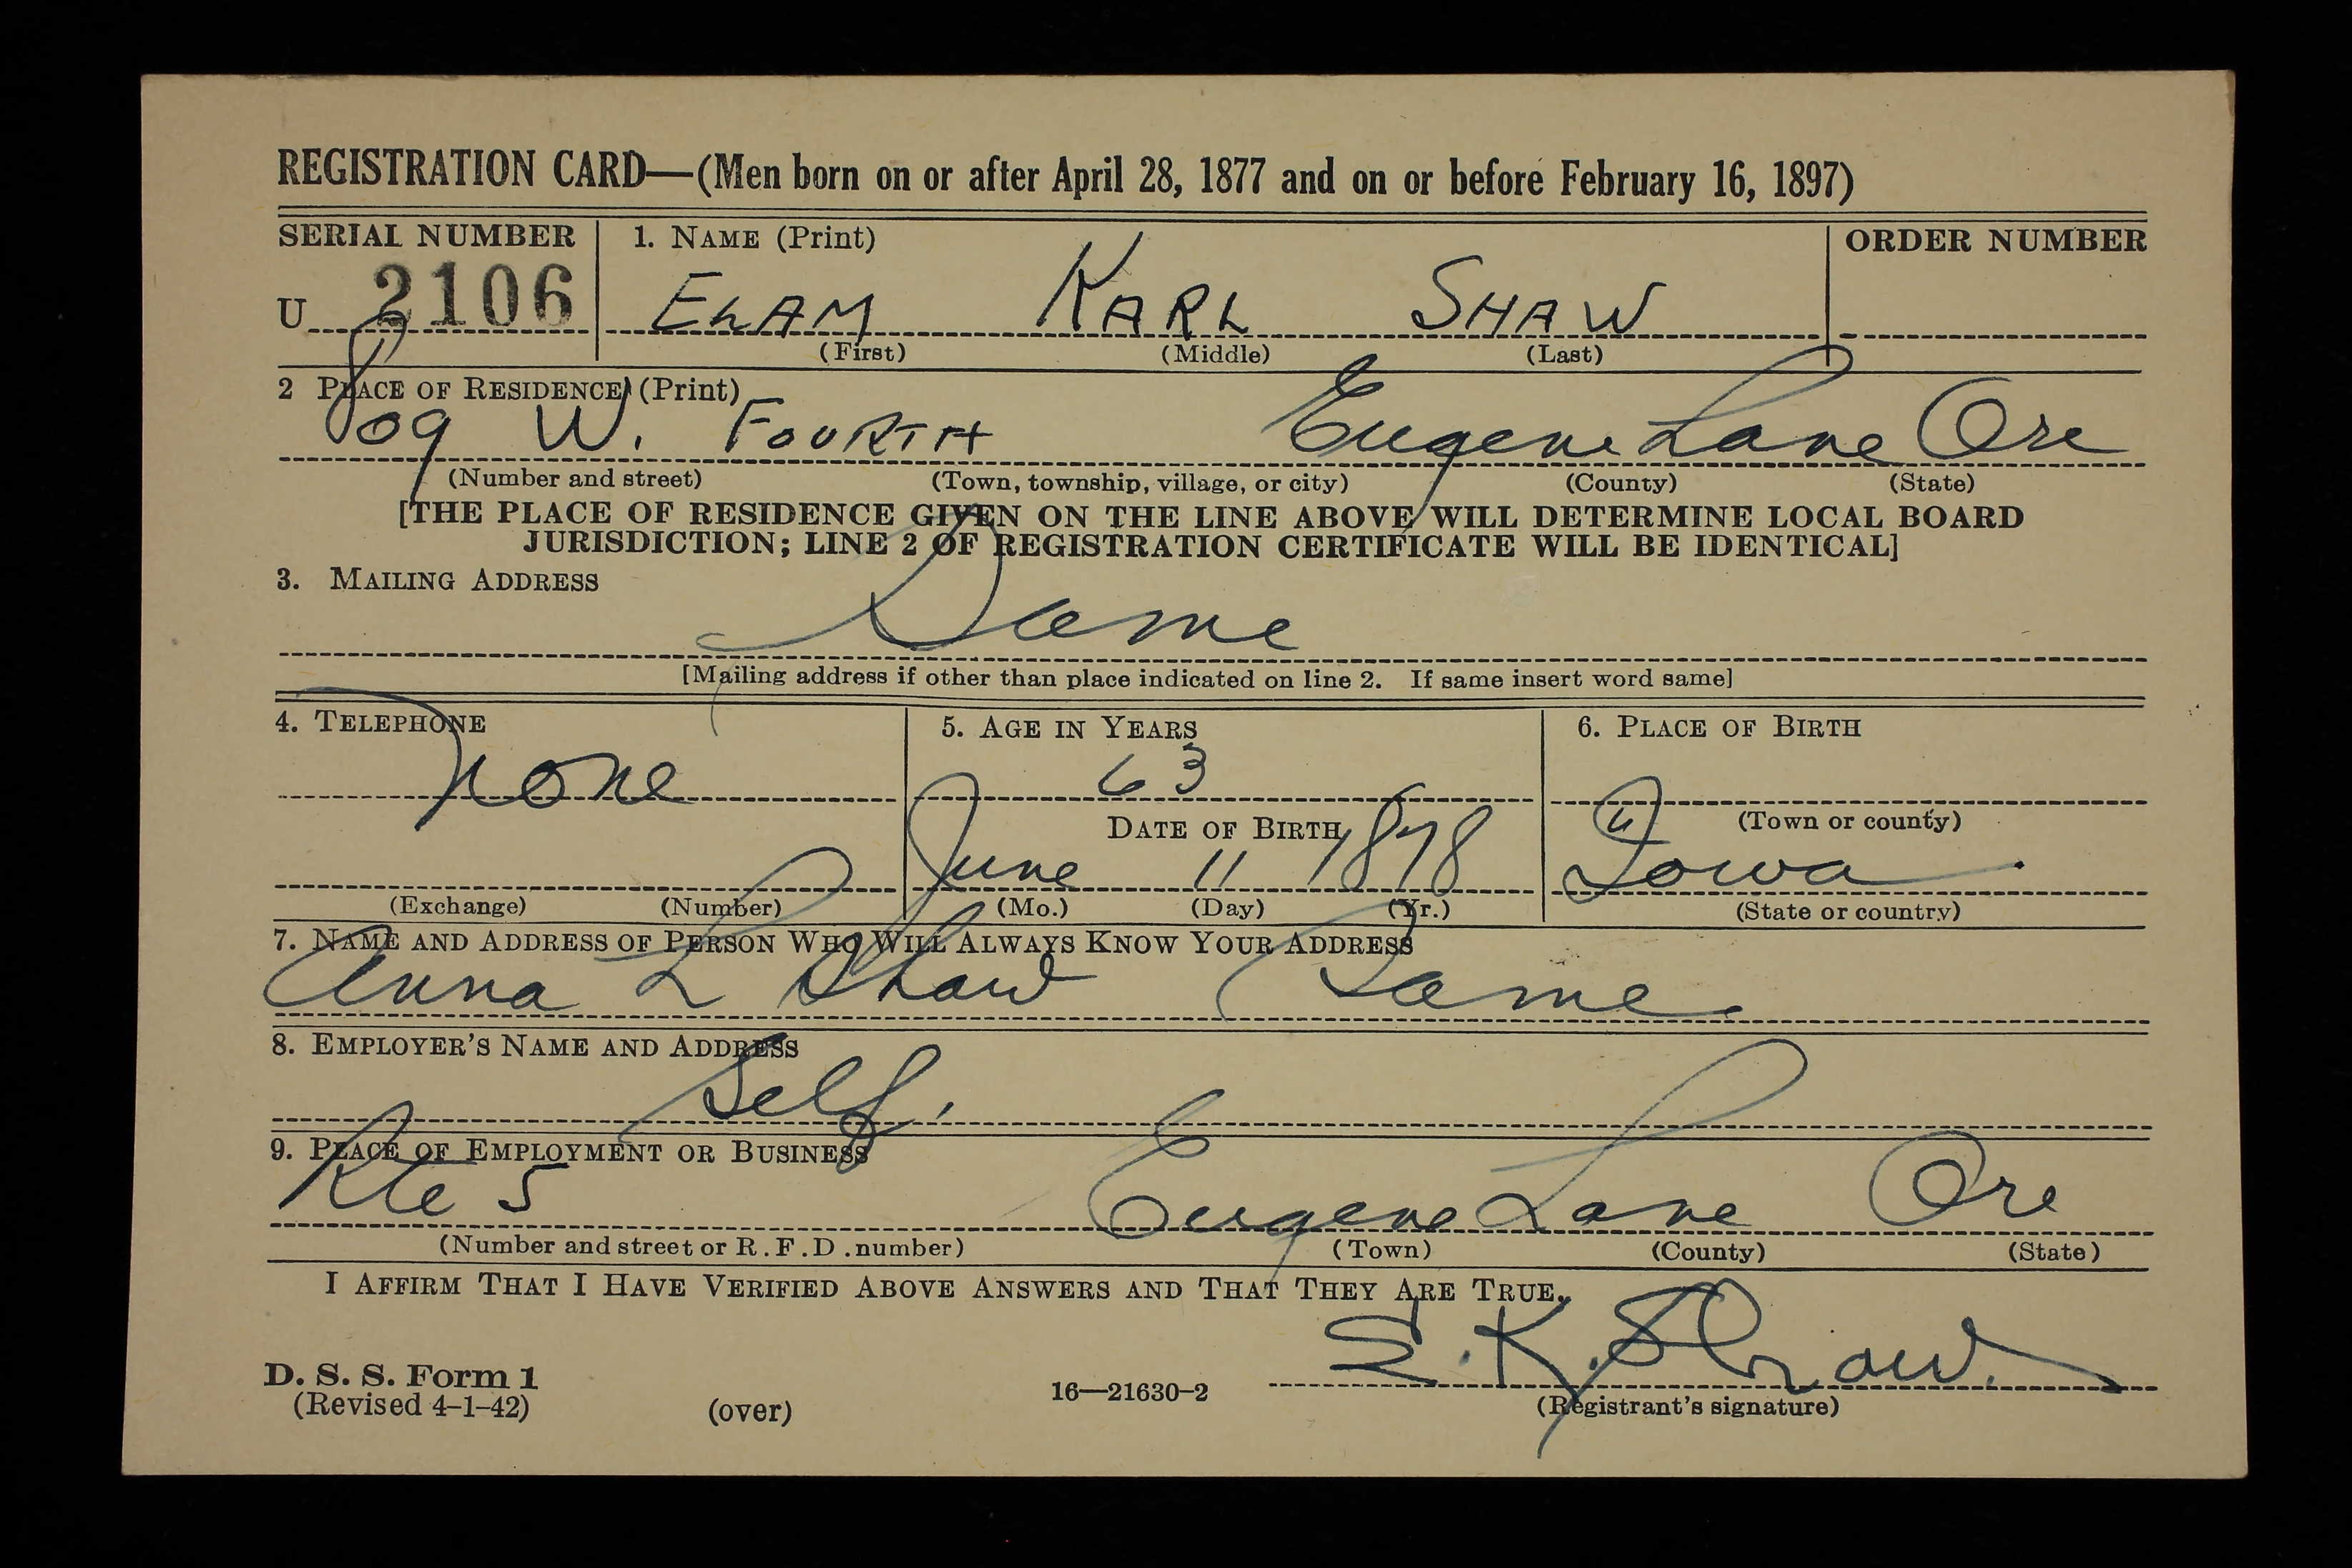 REGISTRATION CARD—(Men born on or after April 28, 1877 and on or before February 16, 1897)
SERIAL NUMBER 1. NAME (Print) ORDER NUMBER
U 2106 ELAM KARL SHAW
(First) (Middle) (Last)
2 PLACE OF RESIDENCE (Print)
809 W. FOURTH Eugene Lane Ore
(Number and street) (Town, township, village, or city) (County) (State)
[THE PLACE OF RESIDENCE GIVEN ON THE LINE ABOVE WILL DETERMINE LOCAL BOARD
JURISDICTION; LINE 2 OF REGISTRATION CERTIFICATE WILL BE IDENTICAL]
3. MAILING ADDRESS
Same
[Mailing address if other than place indicated on line 2. If same insert word same]
4. TELEPHONE 5. AGE IN YEARS 6. PLACE OF BIRTH
None 63
DATE OF BIRTH (Town or county)
June 11 1878 Iowa
(Exchange) (Number) (Mo.) (Day) (Yr.) (State or country)
7. NAME AND ADDRESS OF PERSON WHO WILL ALWAYS KNOW YOUR ADDRESS
Anna L Shaw Same
8. EMPLOYER'S NAME AND ADDRESS
Self.
9. PLACE OF EMPLOYMENT OR BUSINESS
Rte 5 Eugene Lane Ore
(Number and street or R.F.D. number) (Town) (County) (State)
I AFFIRM THAT I HAVE VERIFIED ABOVE ANSWERS AND THAT THEY ARE TRUE.
E. K. Shaw.
D. S. S. Form 1
(Revised 4-1-42) (over) 16—21630-2 (Registrant's signature)